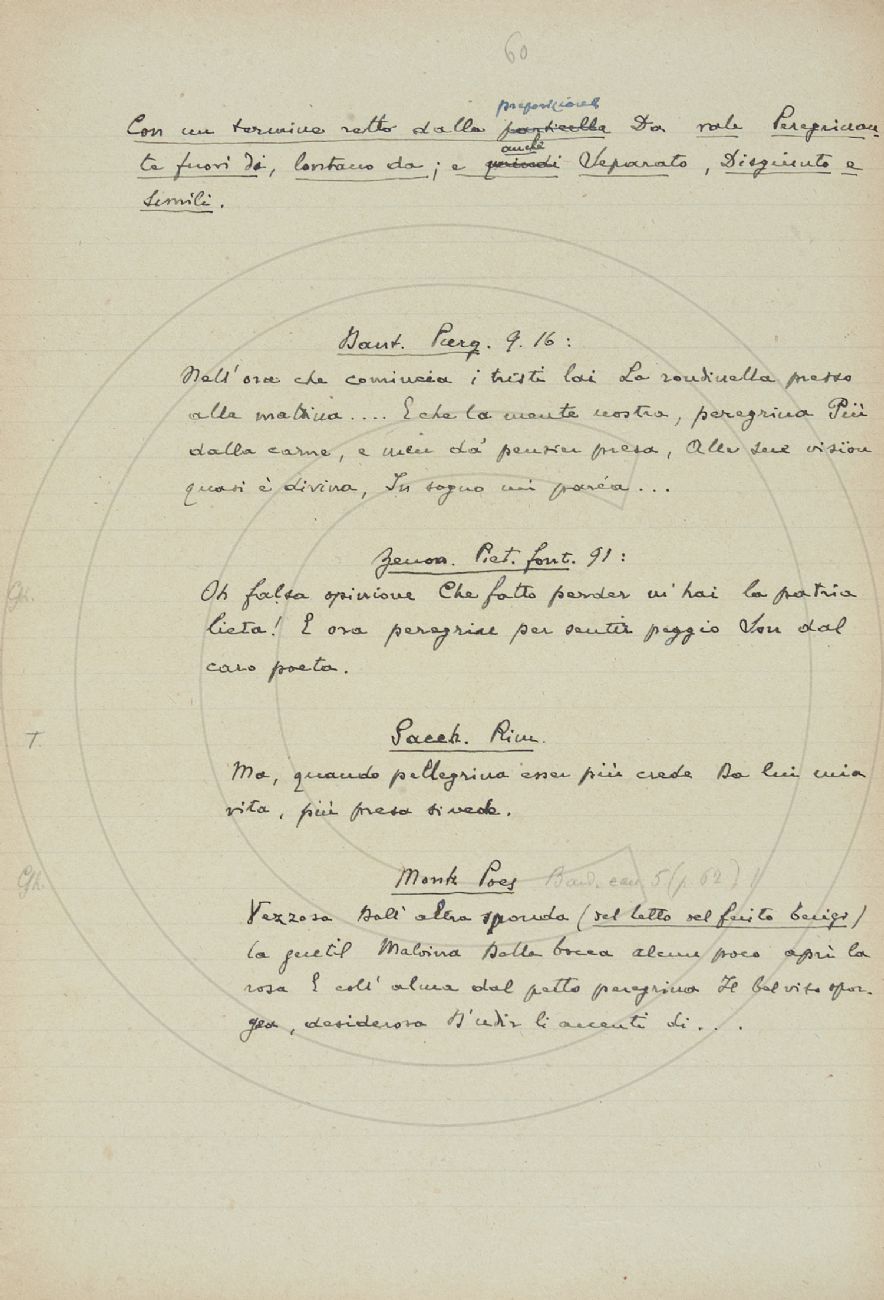 60
preposizione
Con un termine retto dalla particella Da vale Peregrinan-
anche
te fuori di, lontano da; e quindi Separato, Disgiunto e
simili.
Dant. Purg. 9. 16:
Nell'ora che comincia i tristi lai La rondinella presso
alla mattina.... E che la mente nostra, peregrina Più
dalla carne, e men da' pensier presa, Alle sue vision
quasi è divina, In sogno mi parea...
Zenon. Piet. font. 91:
Oh falsa opinione Che fatto perder m'hai la patria
lieta! E ora peregrine per sentir peggio Son dal
caro poeta.
Sacch. Rim.
T.
Ma, quando pellegrina esser più crede Da lui mia
vita, più presa si vede.
Gh.
Mont. Poes Bard. can. 5 (p. 62)
Vezzosa Dall'altra sponda (del letto del ferito
la gentil Malvina Della bocca alcun poco aprì la
rosa E coll'alma dal petto peregrina Il bel viso spor-
gea, desiderosa D'udir li accenti di...